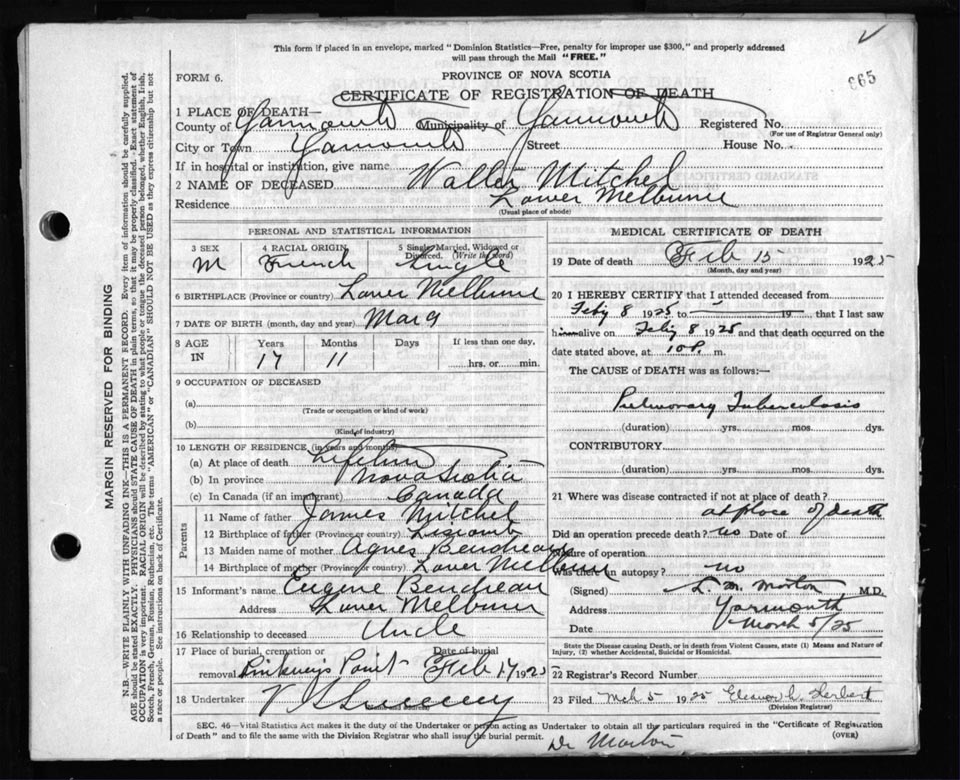 This form if placed in an envelope, marked "Dominion Statistics—Free, penalty for improper use $300," and properly addressed
will pass through the Mail "FREE."
FORM 6.
PROVINCE OF NOVA SCOTIA
CERTIFICATE OF REGISTRATION OF DEATH
665
1 PLACE OF DEATH—
County of Yarmouth Municipality of Yarmouth Registered No.
(For use of Registrar General only)
City or Town Yarmouth Street House No.
If in hospital or institution, give name
2 NAME OF DECEASED Walter Mitchel
Residence Lower Melburne
(Usual place of abode)
PERSONAL AND STATISTICAL INFORMATION
3 SEX 4 RACIAL ORIGIN 5 Single, Married, Widowed or
Divorced. (Write the word)
M French Single
6 BIRTHPLACE (Province or country) Lower Melburne
7 DATE OF BIRTH (month, day and year) Mar 9
8 AGE Years Months Days If less than one day,
IN 17 11 hrs. or min.
9 OCCUPATION OF DECEASED
(a)
(Trade or occupation or kind of work)
(b)
(Kind of industry)
10 LENGTH OF RESIDENCE (in years and months)
(a) At place of death Lifetime
(b) In province Nova Scotia
(c) In Canada (if an immigrant) Canada
Parents
11 Name of father James Mitchel
12 Birthplace of father (Province or country)
13 Maiden name of mother Agnes Beudreau
14 Birthplace of mother (Province or country) Lower Melburn
15 Informant's name Eugene Beudreau
Address Lower Melburn
16 Relationship to deceased Uncle
17 Place of burial, cremation or Date of burial
removal Pinkneys Point Feb 17 1925
18 Undertaker V S Sweeny
(Name and Address)
MEDICAL CERTIFICATE OF DEATH
19 Date of death Feb 15 1925
(Month, day and year)
20 I HEREBY CERTIFY that I attended deceased from
Feby 8 1925 to 19 that I last saw
him alive on Feby 8 1925 and that death occurred on the
date stated above, at 10 P. m.
The CAUSE of DEATH was as follows:—
Pulmonary Tuberculosis
(duration) yrs. mos. dys.
CONTRIBUTORY
(duration) yrs. mos. dys.
21 Where was disease contracted if not at place of death?
at place of death
Did an operation precede death? no Date of
Nature of operation
Was there an autopsy? no
(Signed) L. M. Morton M.D.
Address Yarmouth
Date March 5/25
State the Disease causing Death, or in death from Violent Causes, state (1) Means and Nature of
Injury, (2) whether Accidental, Suicidal or Homicidal.
22 Registrar's Record Number
23 Filed Mch 5 1925 Eleanor L. Herbert
(Division Registrar)
SEC. 46—Vital Statistics Act makes it the duty of the Undertaker or person acting as Undertaker to obtain all the particulars required in the "Certificate of Registration
of Death" and to file the same with the Division Registrar who shall issue the burial permit.
(OVER)
Dr Morton
MARGIN RESERVED FOR BINDING
N.B.—WRITE PLAINLY WITH UNFADING INK—THIS IS A PERMANENT RECORD. Every item of information should be carefully supplied.
AGE should be stated EXACTLY. PHYSICIANS should STATE CAUSE OF DEATH in plain terms, so that it may be properly classified. Exact statement of
OCCUPATION is very important. RACIAL ORIGIN will be described by stating to what people or tongue the deceased person belonged, whether English, Irish,
Scotch, French, German, Russian, Ruthenian, etc. The terms "AMERICAN" or "CANADIAN" SHOULD NOT BE USED as they express citizenship but not
a race or people. See instructions on back of Certificate.